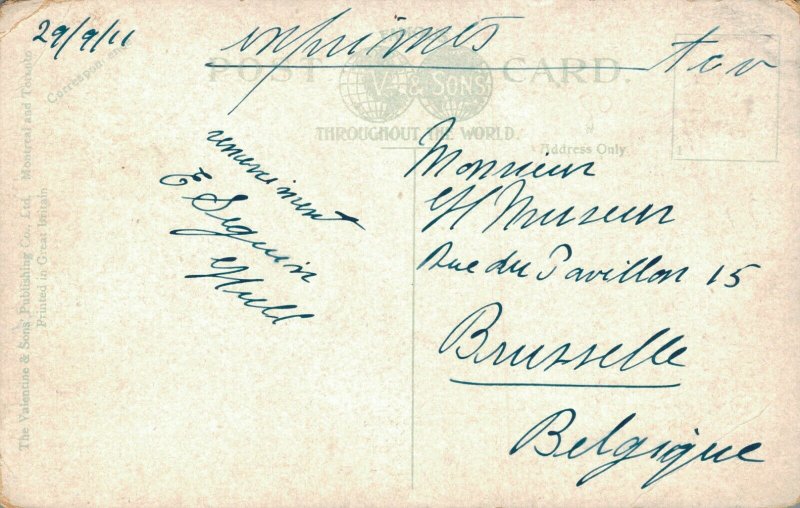 29/9/11
imprimés
tcv
POST CARD.
V. & SONS
THROUGHOUT THE WORLD.
Address Only
Correspondence
The Valentine & Sons Publishing Co. Ltd. Montreal and Toronto
Printed in Great Britain
E Seguin
Hull
Monsieur
H Museur
Rue du Pavillon 15
Brusselle
Belgique